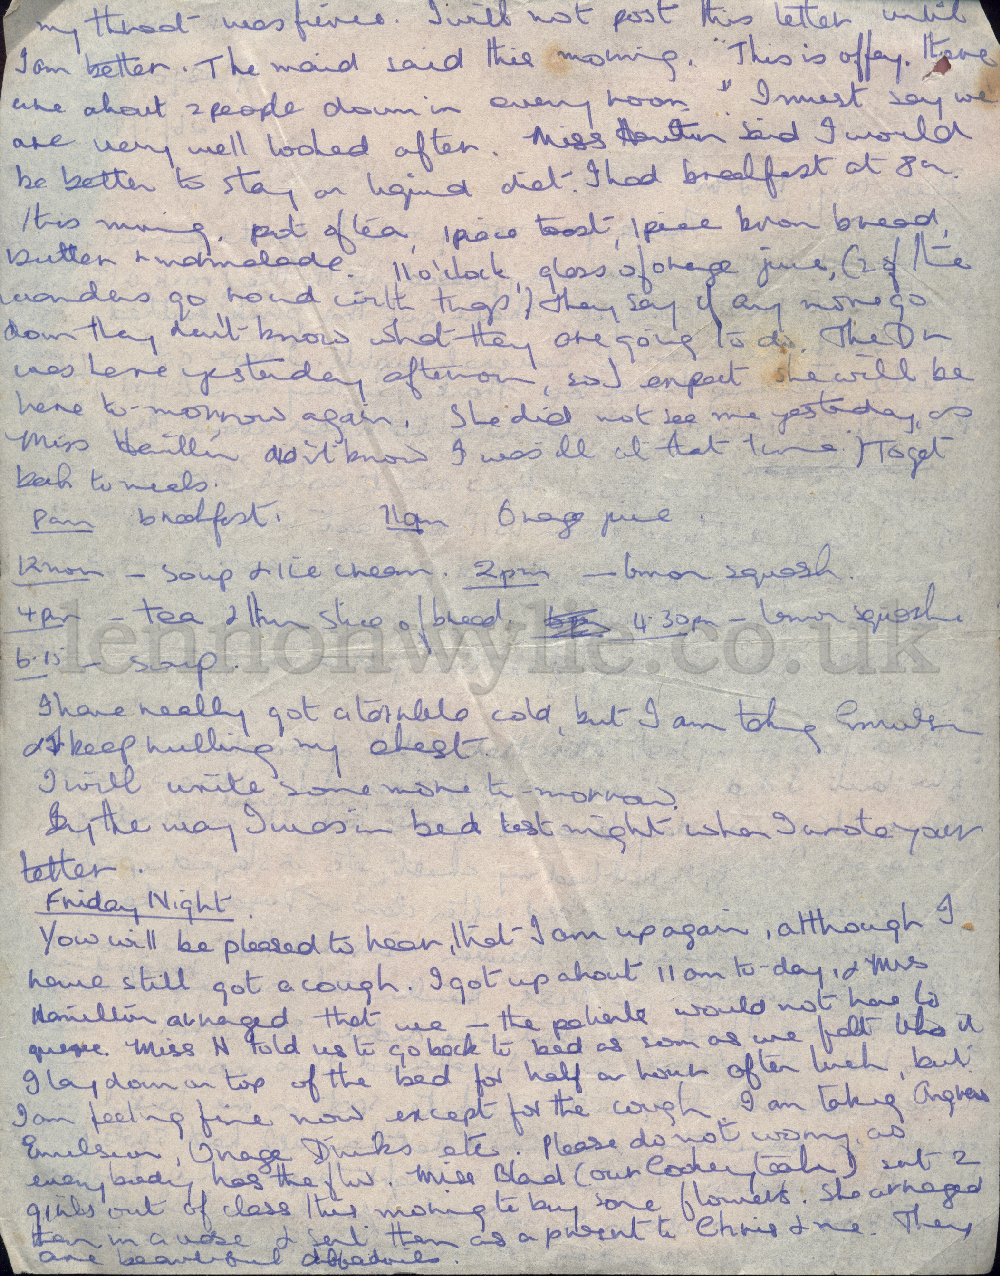 my throat was fierce. I will not post this letter until
I am better. The maid said this morning. "This is offey. There
are about 2 people down in every room" I must say we
are very well looked after. Miss Hamilton said I would
be better to stay on liquid diet. I had breakfast at 8 a.m.
this morning. pot of tea, 1 piece toast, 1 piece brown bread,
butter & marmalade. 11 o'clock, glass of orange juice, (2 of the
wonders go round with trays) They say if any more go
down they don't know what they are going to do. The Dr
was here yesterday afternoon, so I expect she will be
here to-morrow again. She did not see me yesterday, as
Miss Hamilton didn't know I was ill at that time.) To get
back to meals.
8am breakfast. 11am Orange juice.
12 noon – soup & ice cream. 2pm – lemon squash.
4pm – tea & thin slice of bread. 4.30pm – lemon squash.
lennonwylie.co.uk
6.15 – soup.
I have really got a terrible cold, but I am taking Emulsion
& I keep rubbing my chest.
I will write some more to-morrow.
By the way I was in bed last night when I wrote your
letter.
Friday Night
You will be pleased to hear, that I am up again, although I
have still got a cough. I got up about 11 am to-day, & Miss
Hamilton arranged that we – the patients would not have to
queue. Miss H told us to go back to bed as soon as we felt like it
I lay down on top of the bed for half an hour after lunch, but
I am feeling fine now except for the cough. I am taking Angiers
Emulsion, Orange Drinks etc. Please do not worry, as
everybody has the flu. Miss Blad (our Cookery teach) sent 2
girls out of class this morning to buy some flowers. She arranged
them in a vase & sent them as a present to Chris & me. They
are beautiful daffodils.